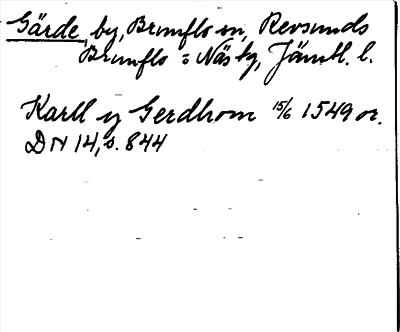 Gärde, by, Brunflo sn, Revsunds
Brunflo o Näs tg, Jämtl. l.
Karll y Gerdhom 15/6 1549 or.
DN 14, s. 844